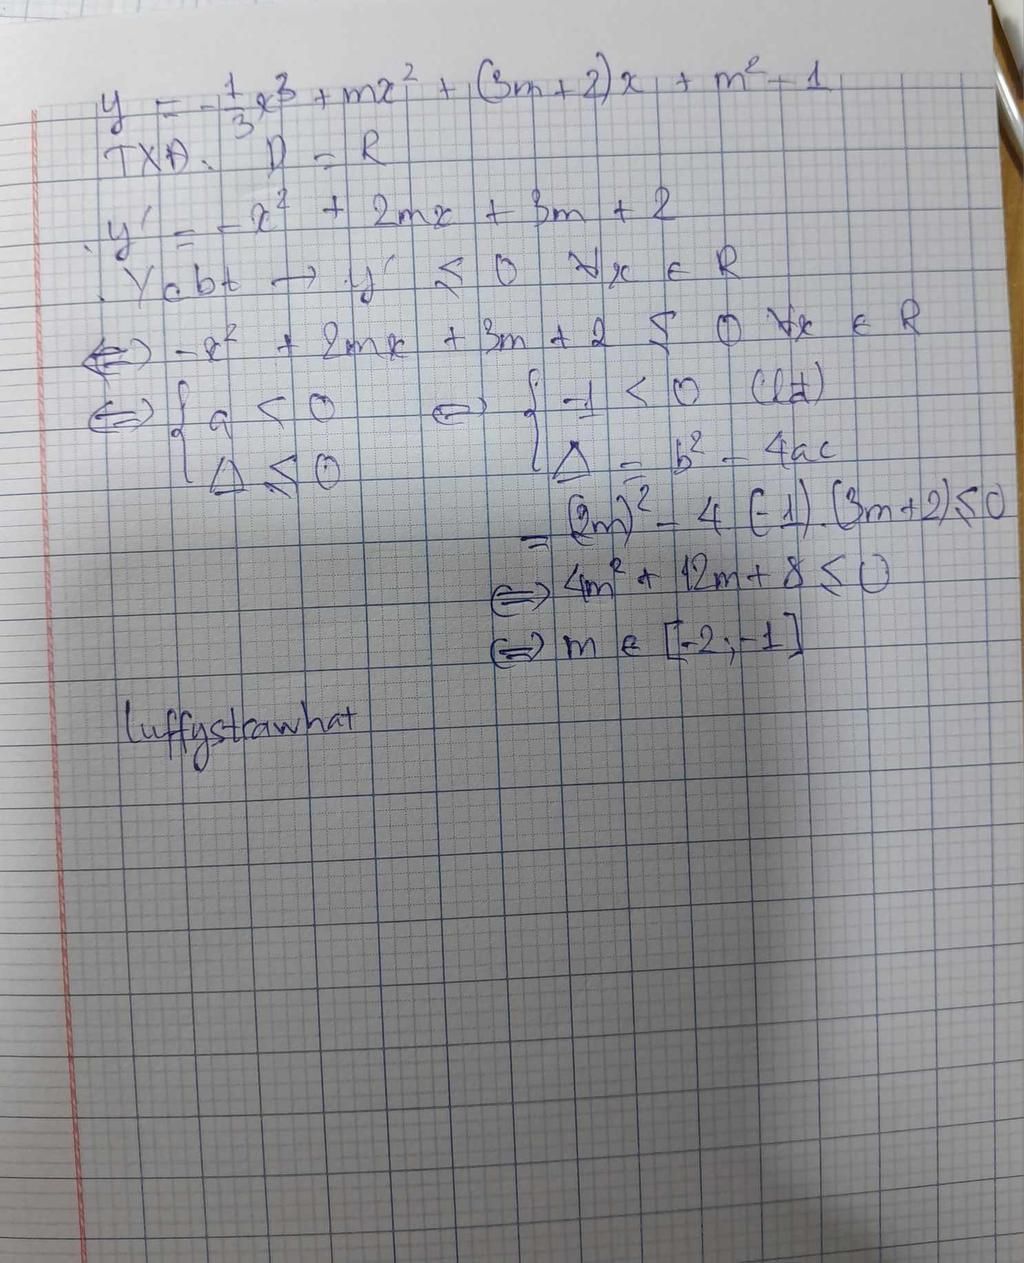 y = -1/3 x³ + mx² + (3m+2)x + m² - 1
TXĐ. D = R
y' = -x² + 2mx + 3m + 2
Ycbt → y' ≤ 0 ∀x ∈ R
⇔ -x² + 2mx + 3m + 2 ≤ 0 ∀x ∈ R
⇔ { a < 0 ⇔ { -1 < 0 (lđ)
Δ ≤ 0 Δ = b² - 4ac
= (2m)² - 4 (-1).(3m+2) ≤ 0
⇔ 4m² + 12m + 8 ≤ 0
⇔ m ∈ [-2; -1]
luffystrawhat